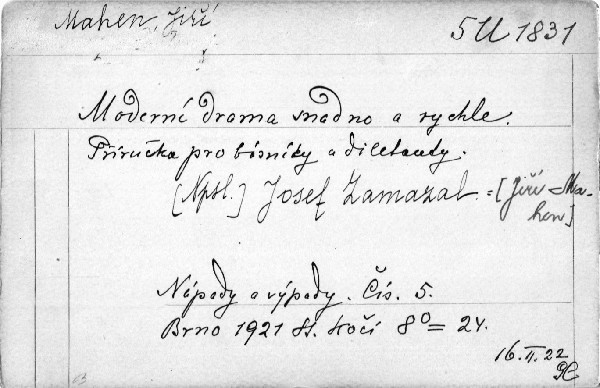 Mahen, Jiří
5 U 1831
Moderní drama snadno a rychle.
Příručka pro básníky a diletanty.
[Npsl.] Josef Zamazal = [Jiří Ma-
hen]
Nápady a výpady. Čís. 5.
Brno 1921 St. Kočí 8° = 24.
16.II.22